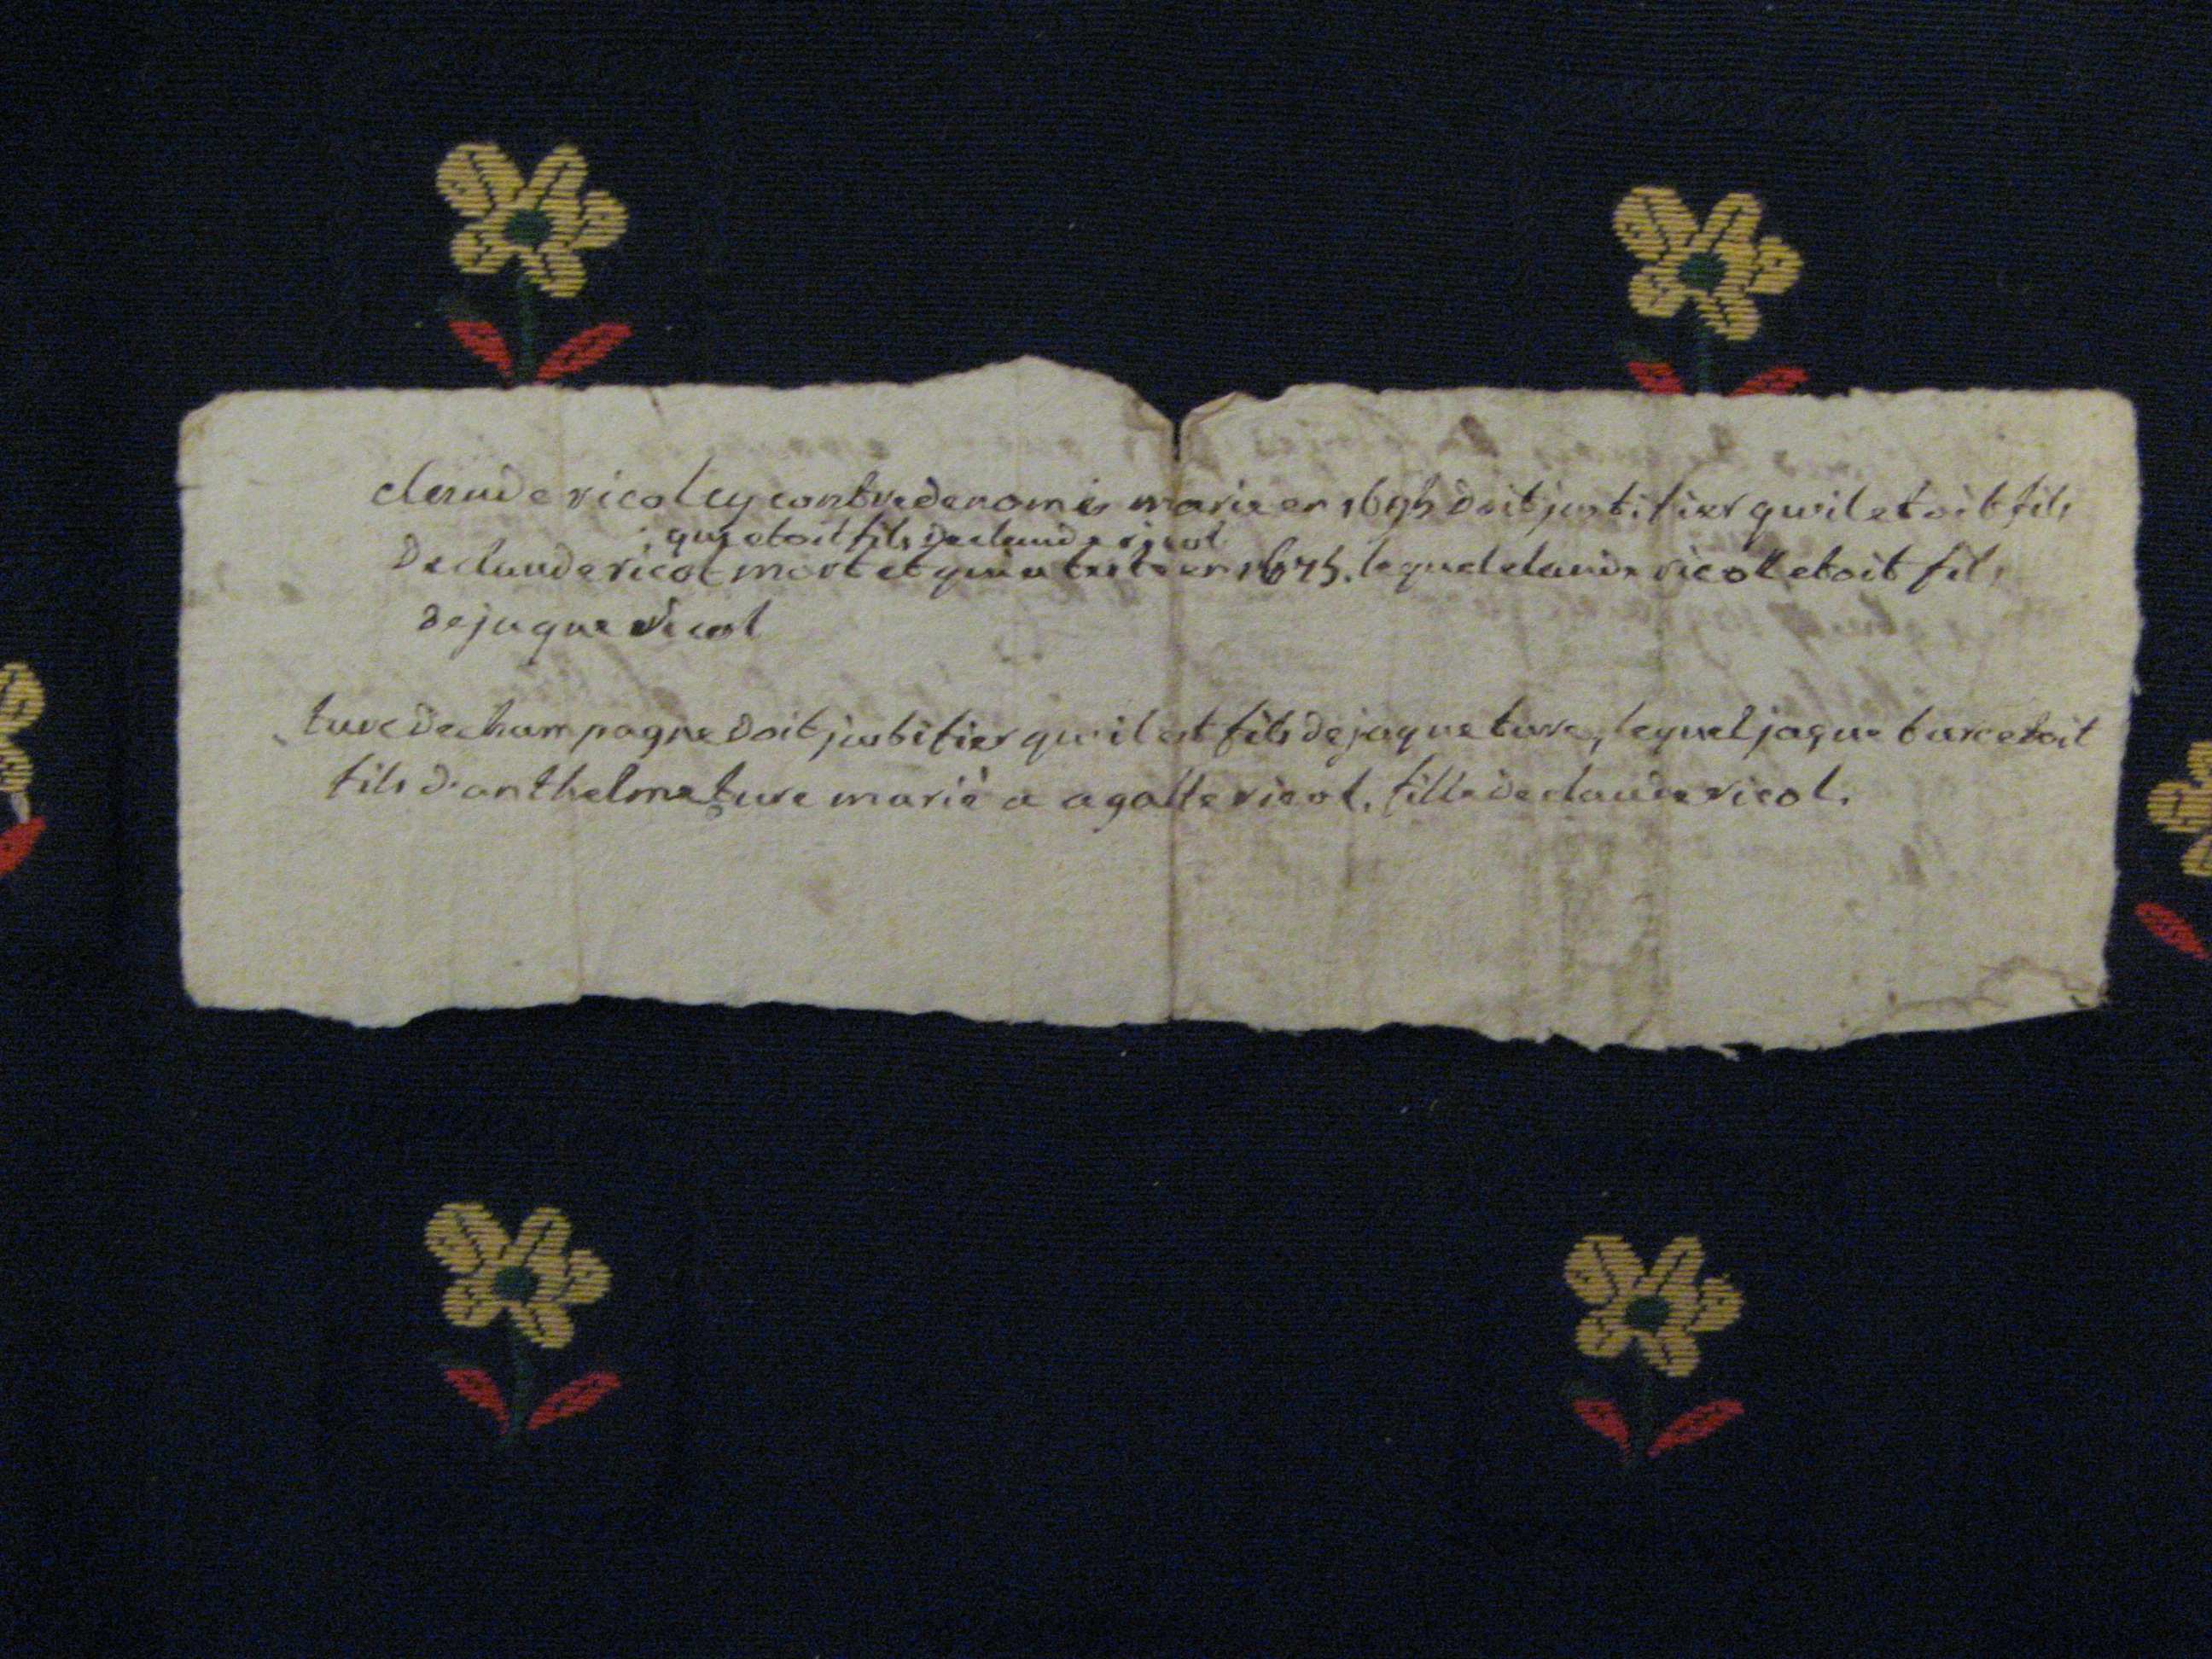 claude ricol cy contre denomé marie en 1695 doit justifier qu'il etoit fils
; qui etoit fils de claude ricol
de claude ricol mort et qui a testé en 1675. lequel claude ricol etoit fils
de jaque ricol
turc de champagne doit justifier qu'il est fils de jaque turc, lequel jaque turc etoit
fils d'anthelme turc marié a agathe ricol, fille de claude ricol.